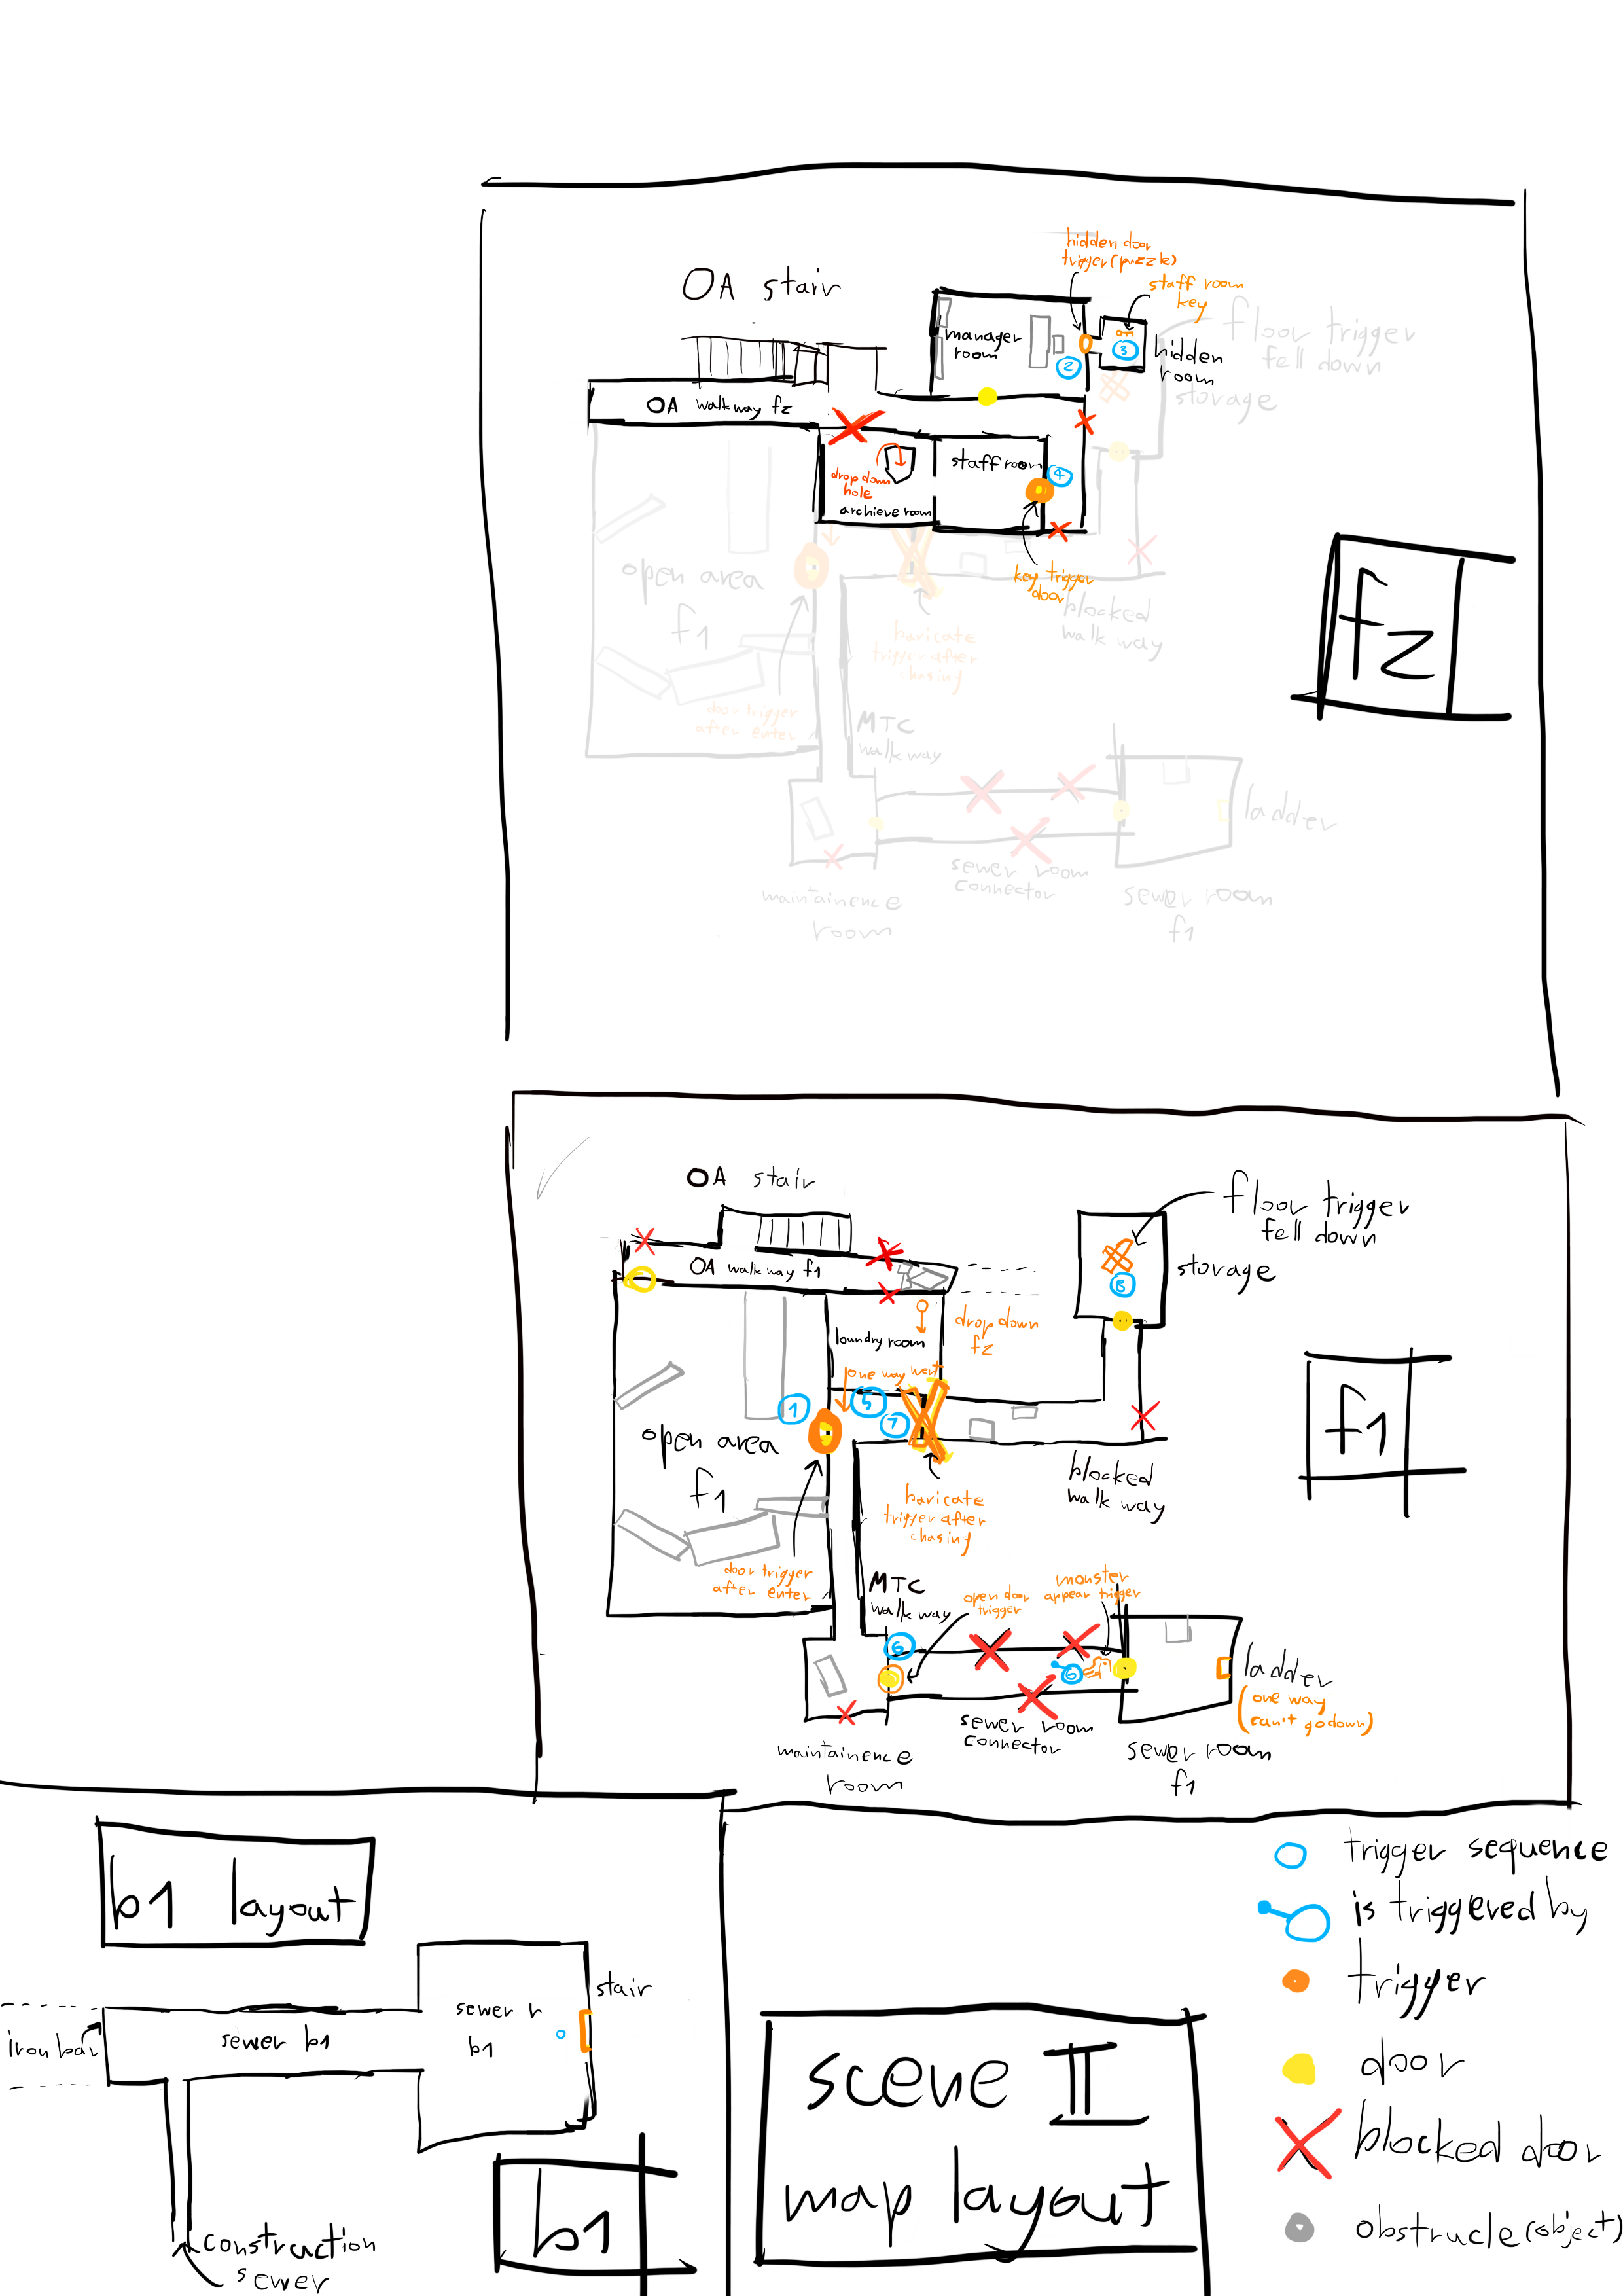 OA stair
hidden door
trigger (puzzle)
staff room
key
manager
room
2
3
hidden
room
floor trigger
fell down
storage
OA walkway f2
staff room
4
drop down
hole
archieve room
key trigger
door
open area
f1
baricate
trigger after
chasing
blocked
walk way
door trigger
after enter
MTC
walk way
ladder
sewer room
connector
maintainence
room
sewer room
f1
f2
OA stair
floor trigger
fell down
storage
8
OA walkway f1
drop down
f2
loundry room
one way went
1
5
7
open area
f1
blocked
walk way
baricate
trigger after
chasing
door trigger
after enter
MTC
walk way
open door
trigger
monster
appear trigger
6
6
ladder
(one way
can't go down)
sewer room
connector
maintainence
room
sewer room
f1
f1
b1 layout
stair
sewer r
b1
iron bar
sewer b1
construction
sewer
b1
scene II
map layout
trigger sequence
is triggered by
trigger
door
blocked door
obstrucle (object)